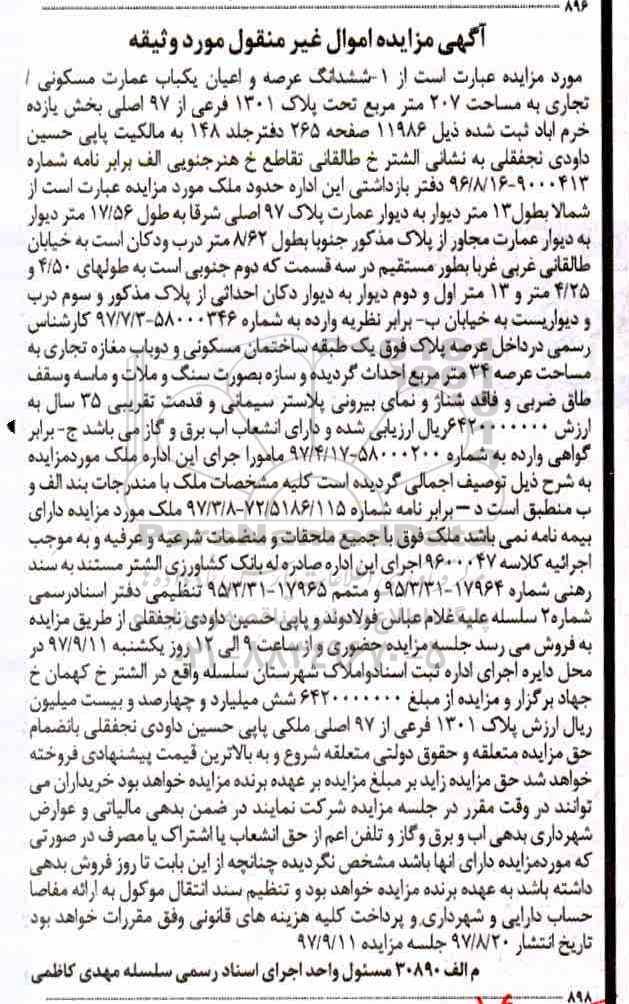 ۸۹۶
آگهی مزایده اموال غیر منقول مورد وثیقه
مورد مزایده عبارت است از ۱-ششدانگ عرصه و اعیان یکباب عمارت مسکونی /
تجاری به مساحت ۲۰۷ متر مربع تحت پلاک ۱۳۰۱ فرعی از ۹۷ اصلی بخش یازده
خرم اباد ثبت شده ذیل ۱۱۹۸۶ صفحه ۲۶۵ دفترجلد ۱۴۸ به مالکیت پاپی حسین
داودی نجفقلی به نشانی الشتر خ طالقانی تقاطع خ هنرجنوبی الف برابر نامه شماره
۹۰۰۰۴۱۳-۹۶/۸/۱۶ دفتر بازداشتی این اداره حدود ملک مورد مزایده عبارت است از
شمالا بطول۱۳ متر دیوار به دیوار عمارت پلاک ۹۷ اصلی شرقا به طول ۱۷/۵۶ متر دیوار
به دیوار عمارت مجاور از پلاک مذکور جنوبا بطول ۸/۶۲ متر درب ودکان است به خیابان
طالقانی غربی غربا بطور مستقیم در سه قسمت که دوم جنوبی است به طولهای ۴/۵۰ و
۴/۲۵ متر و ۱۳ متر اول و دوم دیوار به دیوار دکان احداثی از پلاک مذکور و سوم درب
و دیواریست به خیابان ب- برابر نظریه وارده به شماره ۵۸۰۰۰۳۴۶-۹۷/۷/۳ کارشناس
رسمی درداخل عرصه پلاک فوق یک طبقه ساختمان مسکونی و دوباب مغازه تجاری به
مساحت عرصه ۳۴ متر مربع احداث گردیده و سازه بصورت سنگ و ملات و ماسه وسقف
طاق ضربی و فاقد شناژ و نمای بیرونی پلاستر سیمانی و قدمت تقریبی ۳۵ سال به
ارزش ۶۴۲۰۰۰۰۰۰۰ریال ارزیابی شده و دارای انشعاب اب برق و گاز می باشد ج- برابر
گواهی وارده به شماره ۵۸۰۰۰۲۰۰-۹۷/۴/۱۷ مامورا جرای این اداره ملک موردمزایده
به شرح ذیل توصیف اجمالی گردیده است کلیه مشخصات ملک با مندرجات بند الف و
ب منطبق است د – برابر نامه شماره ۷۲/۵۱۸۶/۱۱۵-۹۷/۳/۸ ملک مورد مزایده دارای
بیمه نامه نمی باشد ملک فوق با جمیع ملحقات و منضمات شرعیه و عرفیه و به موجب
اجرائیه کلاسه ۹۶۰۰۰۴۷ اجرای این اداره صادره له بانک کشاورزی الشتر مستند به سند
رهنی شماره ۱۷۹۶۴-۹۵/۳/۳۱ و متمم ۱۷۹۶۵-۹۵/۳/۳۱ تنظیمی دفتر اسنادرسمی
شماره۲ سلسله علیه غلام عباس فولادوند و پاپی حسین داودی نجفقلی از طریق مزایده
به فروش می رسد جلسه مزایده حضوری و از ساعت ۹ الی ۱۲ روز یکشنبه ۹۷/۹/۱۱ در
محل دایره اجرای اداره ثبت اسنادواملاک شهرستان سلسله واقع در الشتر خ کهمان خ
جهاد برگزار و مزایده از مبلغ ۶۴۲۰۰۰۰۰۰۰ شش میلیارد و چهارصد و بیست میلیون
ریال ارزش پلاک ۱۳۰۱ فرعی از ۹۷ اصلی ملکی پاپی حسین داودی نجفقلی بانضمام
حق مزایده متعلقه و حقوق دولتی متعلقه شروع و به بالاترین قیمت پیشنهادی فروخته
خواهد شد حق مزایده زاید بر مبلغ مزایده بر عهده برنده مزایده خواهد بود خریداران می
توانند در وقت مقرر در جلسه مزایده شرکت نمایند در ضمن بدهی مالیاتی و عوارض
شهرداری بدهی اب و برق وگاز و تلفن اعم از حق انشعاب یا اشتراک یا مصرف در صورتی
که موردمزایده دارای انها باشد مشخص نگردیده چنانچه از این بابت تا روز فروش بدهی
داشته باشد به عهده برنده مزایده خواهد بود و تنظیم سند انتقال موکول به ارائه مفاصا
حساب دارایی و شهرداری و پرداخت کلیه هزینه های قانونی وفق مقررات خواهد بود
تاریخ انتشار ۹۷/۸/۲۰ جلسه مزایده ۹۷/۹/۱۱
م الف ۳۰۸۹۰ مسئول واحد اجرای اسناد رسمی سلسله مهدی کاظمی
۸۹۸